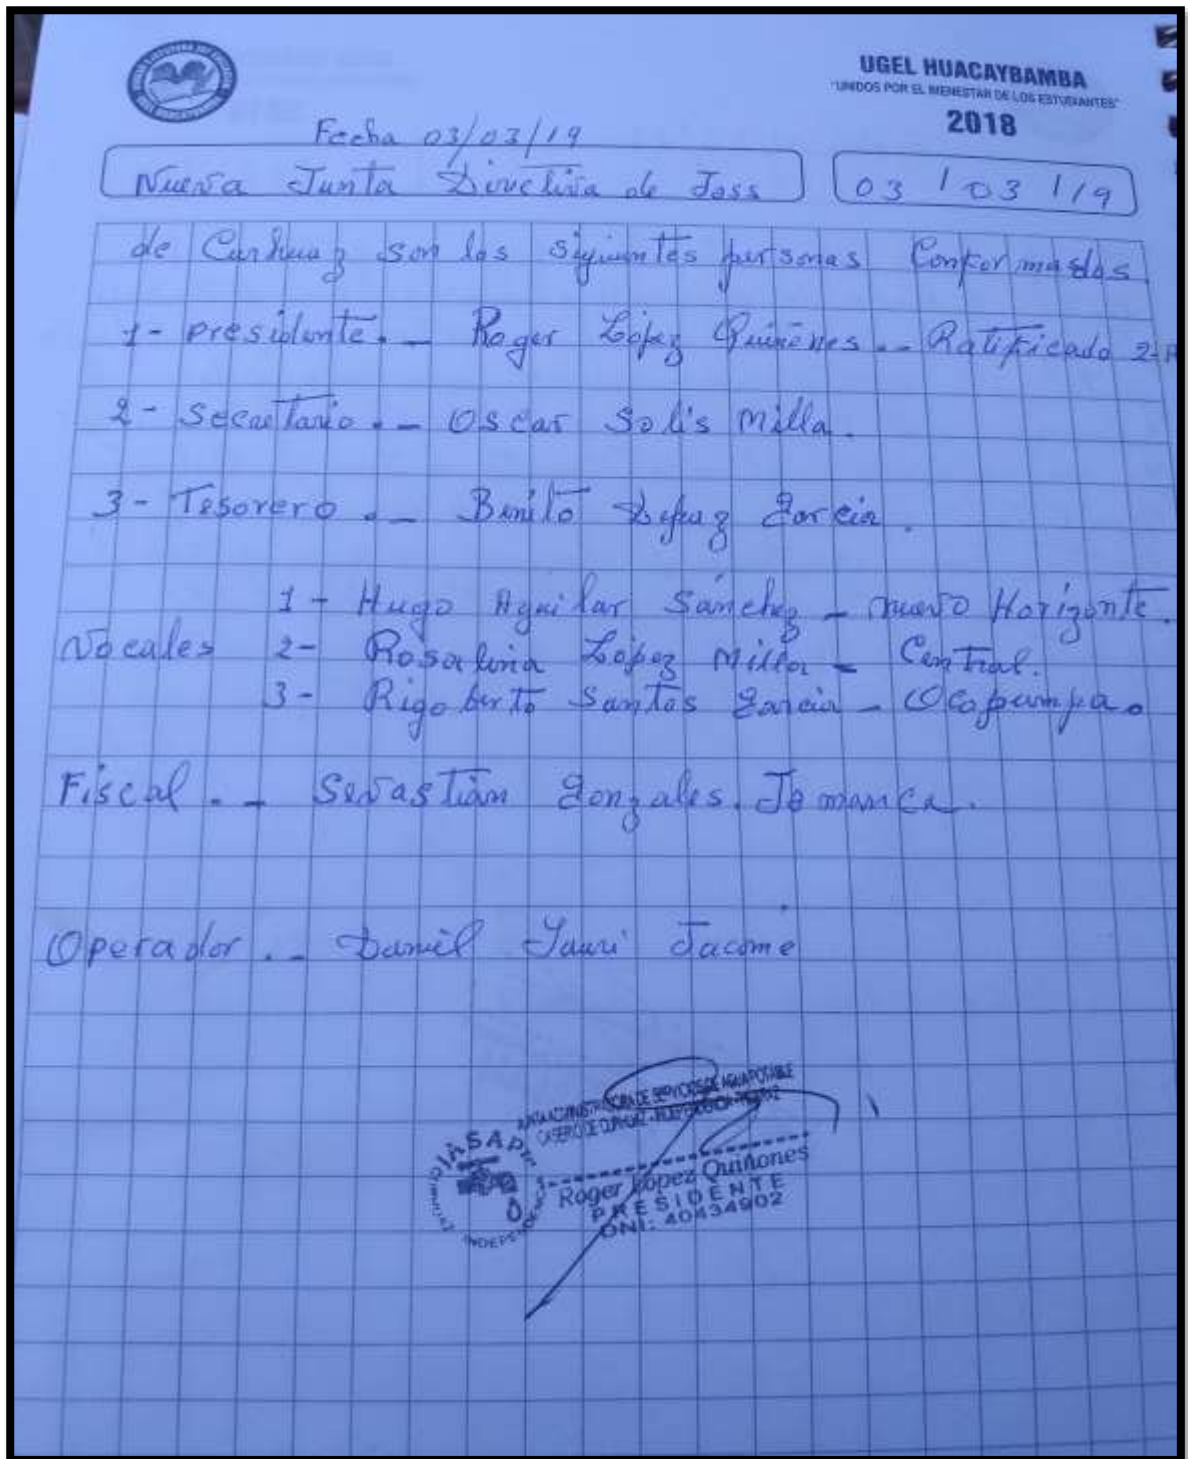 UGEL HUACAYBAMBA
"UNIDOS POR EL BIENESTAR DE LOS ESTUDIANTES"
2018
Fecha 03/03/19
Nueva Junta Directiva de Jass
03 / 03 / 19
de Curhuaz son los siguientes personas Conformados
1- presidente. - Roger López Quiñones - Ratificado 2-
2- Secretario. - Oscar Solis Milla.
3- Tesorero. - Benito Depaz Garcia.
1- Hugo Aguilar Sánchez - nuevo Horizonte.
Vocales 2- Rosalina López Milla - Central.
3- Rigoberto Santos Garcia - Ocopampa.
Fiscal. - Sevastián Gonzales Jamanca.
Operador. - Daniel Yauri Jacome
JUNTA ADMINISTRADORA DE SERVICIOS DE AGUA POTABLE
CASERIO DE CURHUAZ - INDEPENDENCIA - HUARAZ
JASAP
Roger López Quiñones
PRESIDENTE
DNI: 40434902